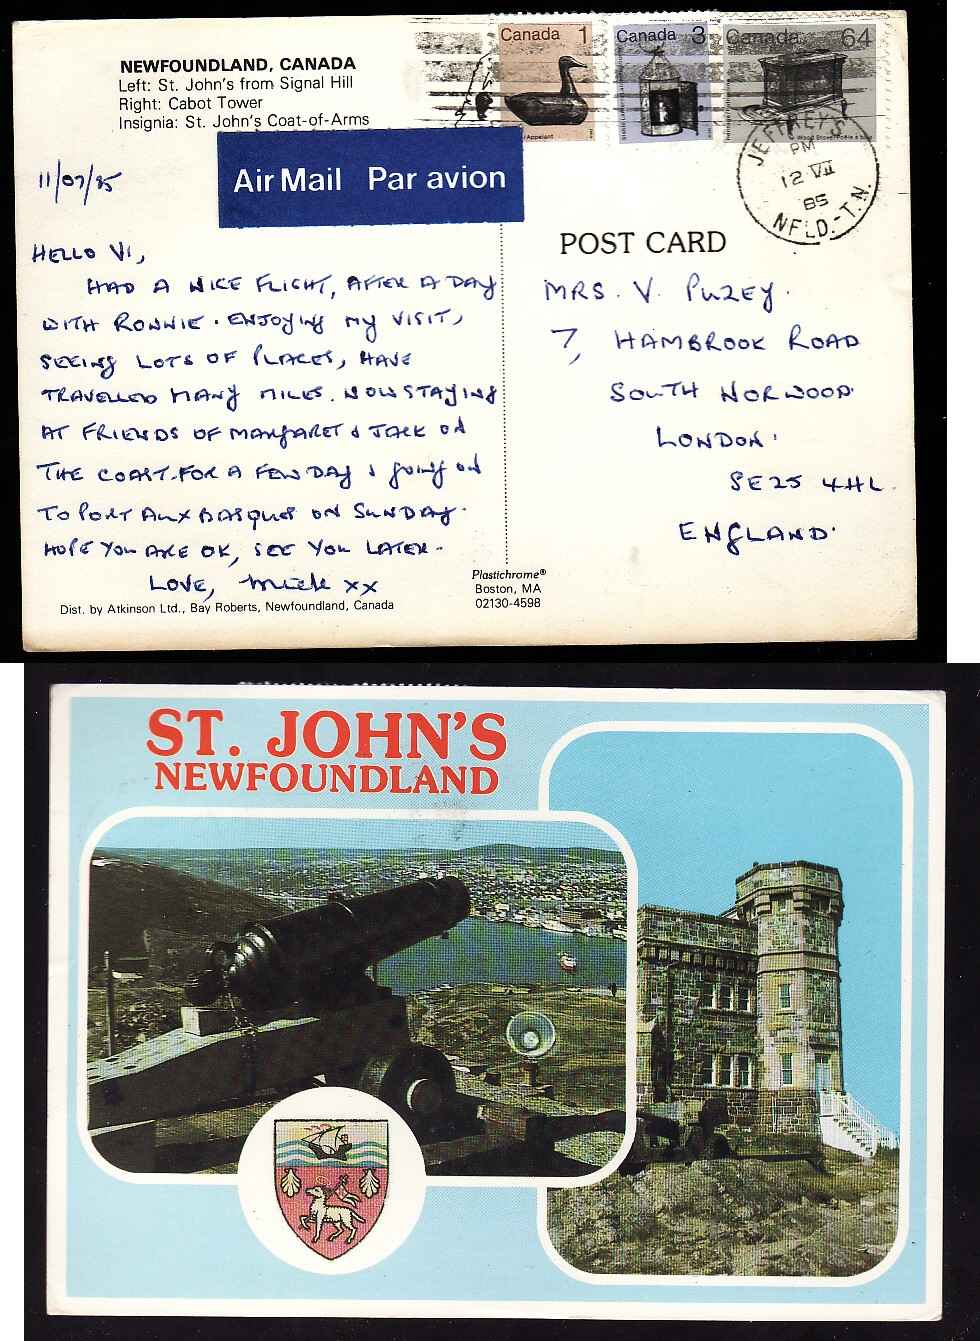 NEWFOUNDLAND, CANADA
Left: St. John's from Signal Hill
Right: Cabot Tower
Insignia: St. John's Coat-of-Arms
Canada 1
Canada 3
Canada 64
Air Mail Par avion
JEFFREY'S
PM
12 VII
85
NFLD.-T.N.
11/07/85
HELLO VI,
HAD A NICE FLIGHT, AFTER A DAY
WITH RONNIE. ENJOYING MY VISIT,
SEEING LOTS OF PLACES, HAVE
TRAVELLED MANY MILES. NOW STAYING
AT FRIENDS OF MARGARET & JACK ON
THE COAST. FOR A FEW DAYS & going on
TO PORT AUX BASQUES ON SUNDAY.
HOPE YOU ARE OK, SEE YOU LATER.
LOVE, Mick xx
POST CARD
MRS. V. PUZEY.
7, HAMBROOK ROAD
SOUTH NORWOOD.
LONDON.
SE25 4HL.
ENGLAND.
Plastichrome®
Boston, MA
02130-4598
Dist. by Atkinson Ltd., Bay Roberts, Newfoundland, Canada
ST. JOHN'S
NEWFOUNDLAND